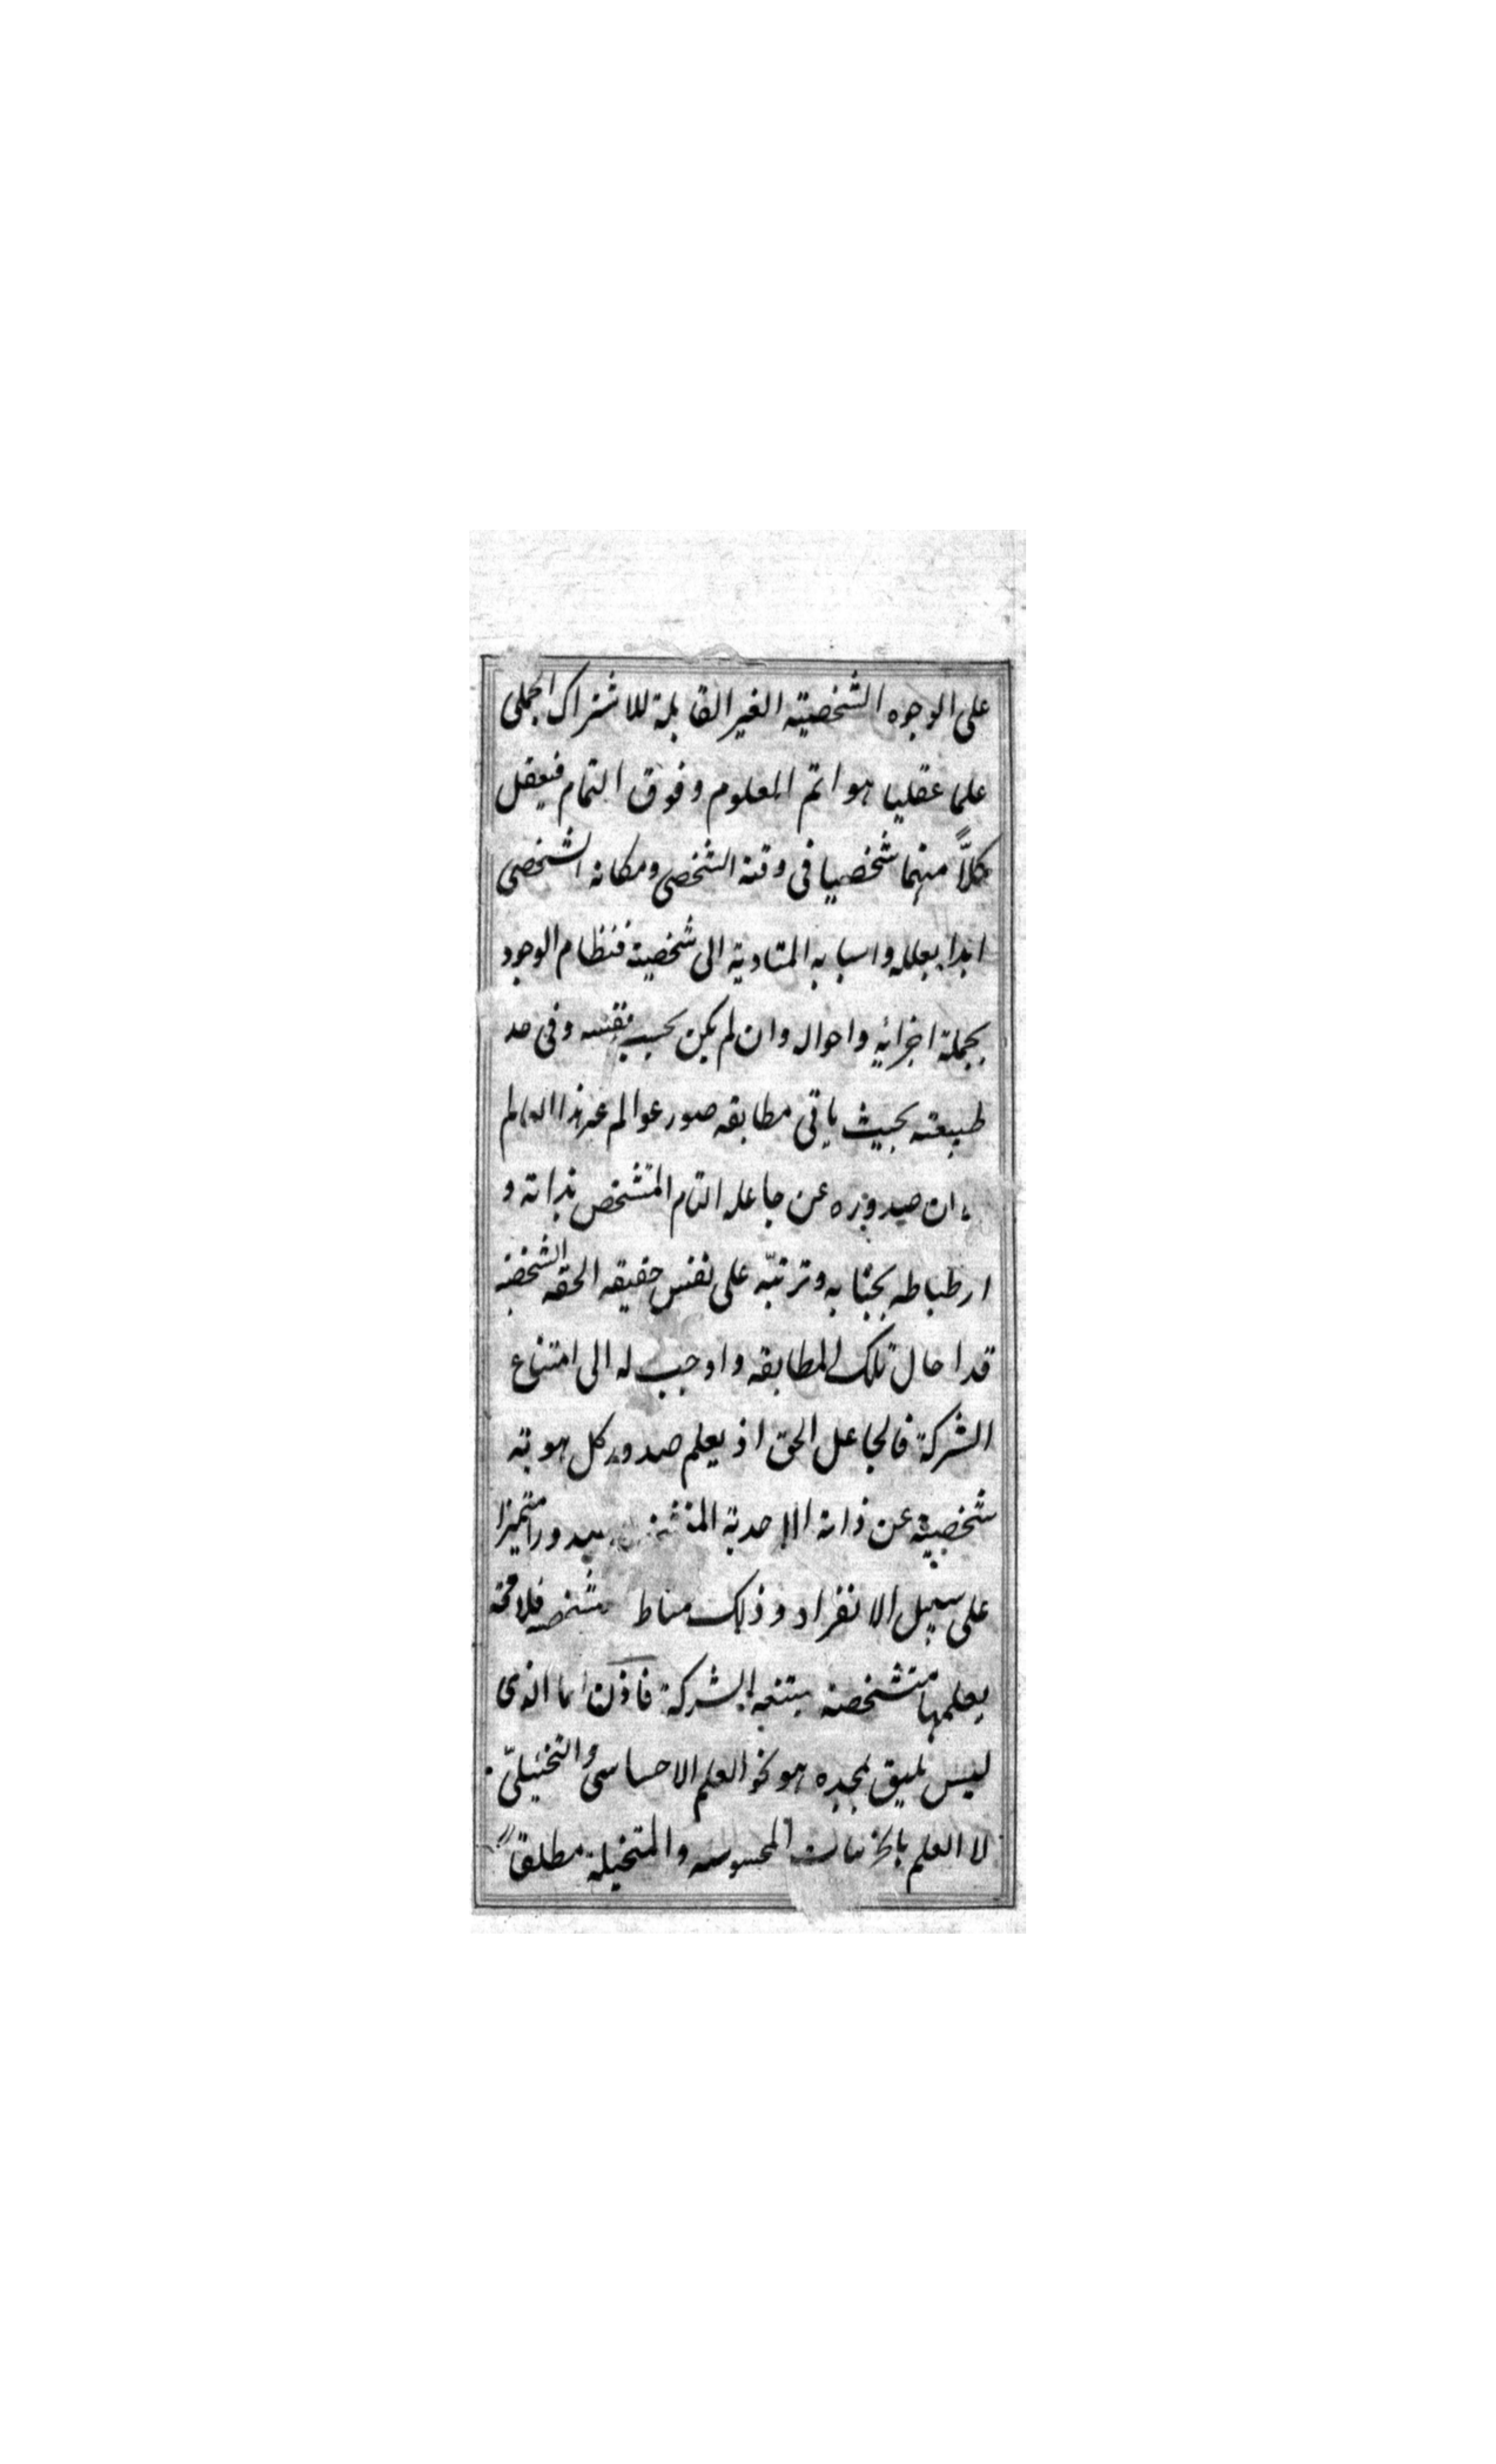 على الوجوه الشخصية الغير القابلة للاشتراك الجملى
علما عقليا هو اتم العلوم وفوق التمام فيعقل
كلاًّ منهما شخصيا فى وقته الشخصى ومكانه الشخصى
ابدا بعلله واسبابه المتادية الى شخصيته فنظام الوجود
بجملة اجزائه واحواله وان لم يكن بحسب نفسه وفى حد
طبيعته بحيث ياتى مطابقه صور عوالم هذا العالم
ان صدوره عن جاعله التام المتشخص بذاته و
ارطباطه بجنابه وترتبّه على نفس حقيقه الحقه الشخصية
قد احال تلك المطابقه واوجب له الى امتناع
الشركة فالجاعل الحق اذ يعلم صدور كل هوية
شخصية عن ذاته الاحدية صدورا متميزا
على سبيل الانفراد وذلك مناط تشخصه فلا محة
يعلمها متشخصة الشركة فاذن اما الذى
ليس يليق بمجده هو نحو العلم الاحساسى والتخيلىّ
لا العلم بالجزئيات المحسوسه والمتخيلة مطلقاً